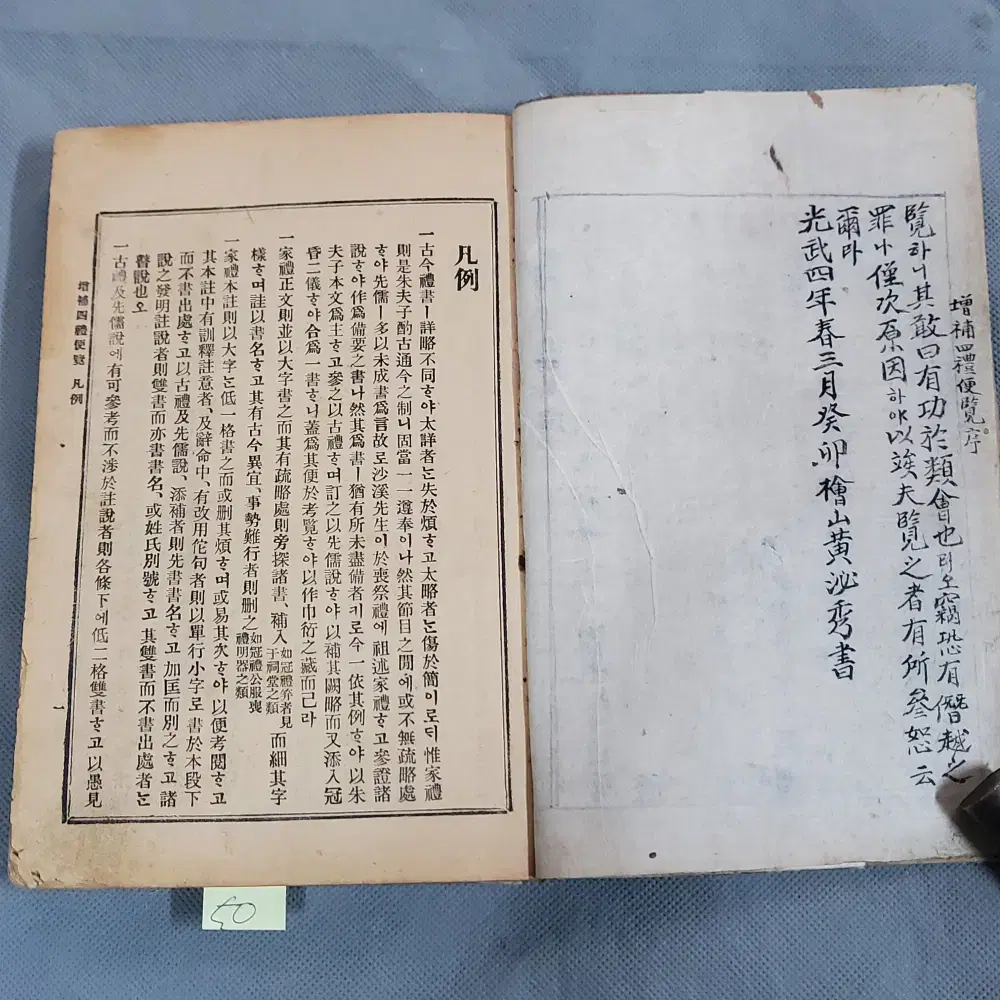 增補四禮便覽序
覽하니其敢曰有功於類會也리오竊恐有僭越之
罪나僅次原因하야以竢夫覽之者有所參恕云
爾라
光武四年春三月癸卯檜山黃泌秀書
凡例
一古今禮書ㅣ詳略不同ᄒᆞ야太詳者ᄂᆞᆫ失於煩ᄒᆞ고太略者ᄂᆞᆫ傷於簡이로ᄃᆡ惟家禮
則是朱夫子酌古通今之制니固當一一遵奉이나然其節目之間에或不無疏略處
ᄒᆞ야先儒ㅣ多以未成書爲言故로沙溪先生이於喪祭禮에祖述家禮ᄒᆞ고參證諸
說ᄒᆞ야作爲備要之書나然其爲書ㅣ猶有所未盡備者키로今一依其例ᄒᆞ야以朱
夫子本文爲主ᄒᆞ고參之以古禮ᄒᆞ며訂之以先儒說ᄒᆞ야以補其闕略而又添入冠
昏二儀ᄒᆞ야合爲一書ᄒᆞ니蓋爲其便於考覽ᄒᆞ야以作巾衍之藏而已라
一家禮正文則並以大字書之而其有疏略處則旁探諸書、補入如冠禮筓者見于祠堂之類而細其字
樣ᄒᆞ며註以書名ᄒᆞ고其有古今異宜、事勢難行者則刪之如冠禮公服喪禮明器之類
一家禮本註則以大字ᄂᆞᆫ低一格書之而或刪其煩ᄒᆞ며或易其次ᄒᆞ야以便考閱ᄒᆞ고
其本註中有訓釋註意者、及辭命中、有改用佗句者則以單行小字로書於本段下
而不書出處ᄒᆞ고以古禮及先儒說、添補者則先書書名ᄒᆞ고加匡而別之ᄒᆞ고諸
說之發明註說者則雙書而亦書書名、或姓氏別號ᄒᆞ고其雙書而不書出處者ᄂᆞᆫ
朁說也오
一古禮及先儒說에有可參考而不涉於註說者則各條下에低二格雙書ᄒᆞ고以愚見
增補四禮便覽 凡例
一
50